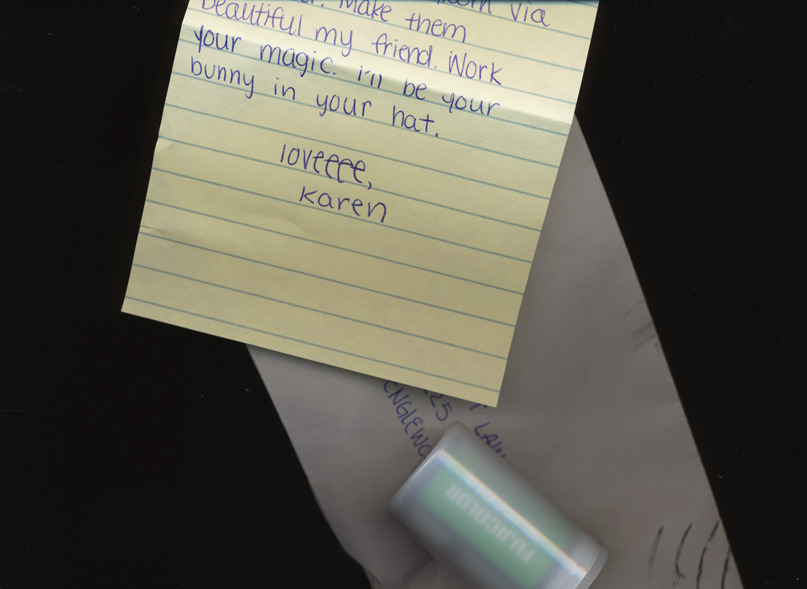 Make them via
beautiful my friend. Work
your magic. i'll be your
bunny in your hat.
loveeee,
karen
25
FUJICOLOR